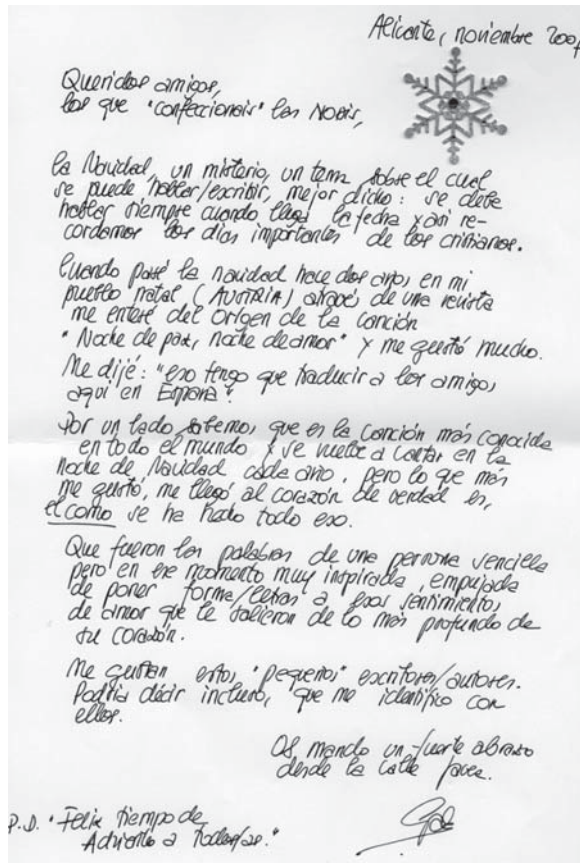 Alicante, noviembre 200
Queridos amigos,
los que "confeccionais" las NOBIS,
la Navidad, un misterio, un tema sobre el cual
se puede hablar/escribir, mejor dicho: se debe
hablar siempre cuando llega la fecha y asi re-
cordamos los dias importantes de los cristianos.
Cuando pasé la navidad hace dos anos, en mi
pueblo natal (AUSTRIA) a través de una revista
me enteré del origen de la canción
"Noche de paz, noche de amor" y me gustó mucho.
Me dijé: "eso tengo que traducir a los amigos
aqui en Espana".
Por un lado sabemos, que es la canción más conocida
en todo el mundo y se vuelve a cantar en la
noche de Navidad cada ano, pero lo que más
me gustó, me llegó al corazón de verdad es,
el como se ha hecho todo eso.
Que fueron las palabras de una persona sencilla
pero en ese momento muy inspirada, empujada
de poner forma/letras a esos sentimientos
de amor que le salieron de lo más profundo de
su corazón.
Me gustan estos "pequenos" escritores/autores.
Podria decir incluso, que me identifico con
ellos.
Os mando un fuerte abrazo
desde la calle
P.D. "Feliz tiempo de
Adviento a todos/as."